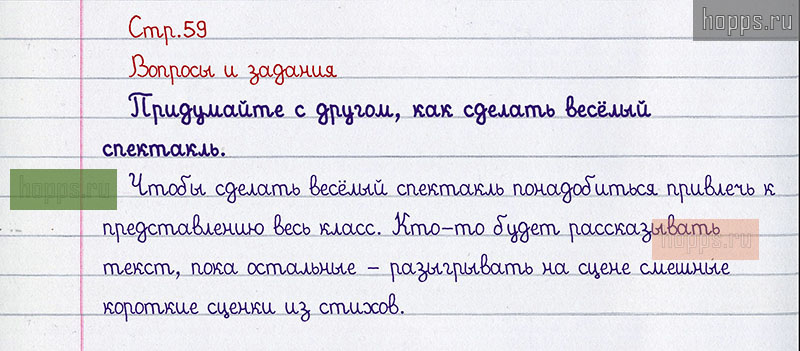 hopps.ru
Стр.59
Вопросы и задания
Придумайте с другом, как сделать весёлый
спектакль.
hopps.ru
Чтобы сделать весёлый спектакль понадобиться привлечь к
представлению весь класс. Кто-то будет рассказывать
hopps.ru
текст, пока остальные – разыгрывать на сцене смешные
короткие сценки из стихов.